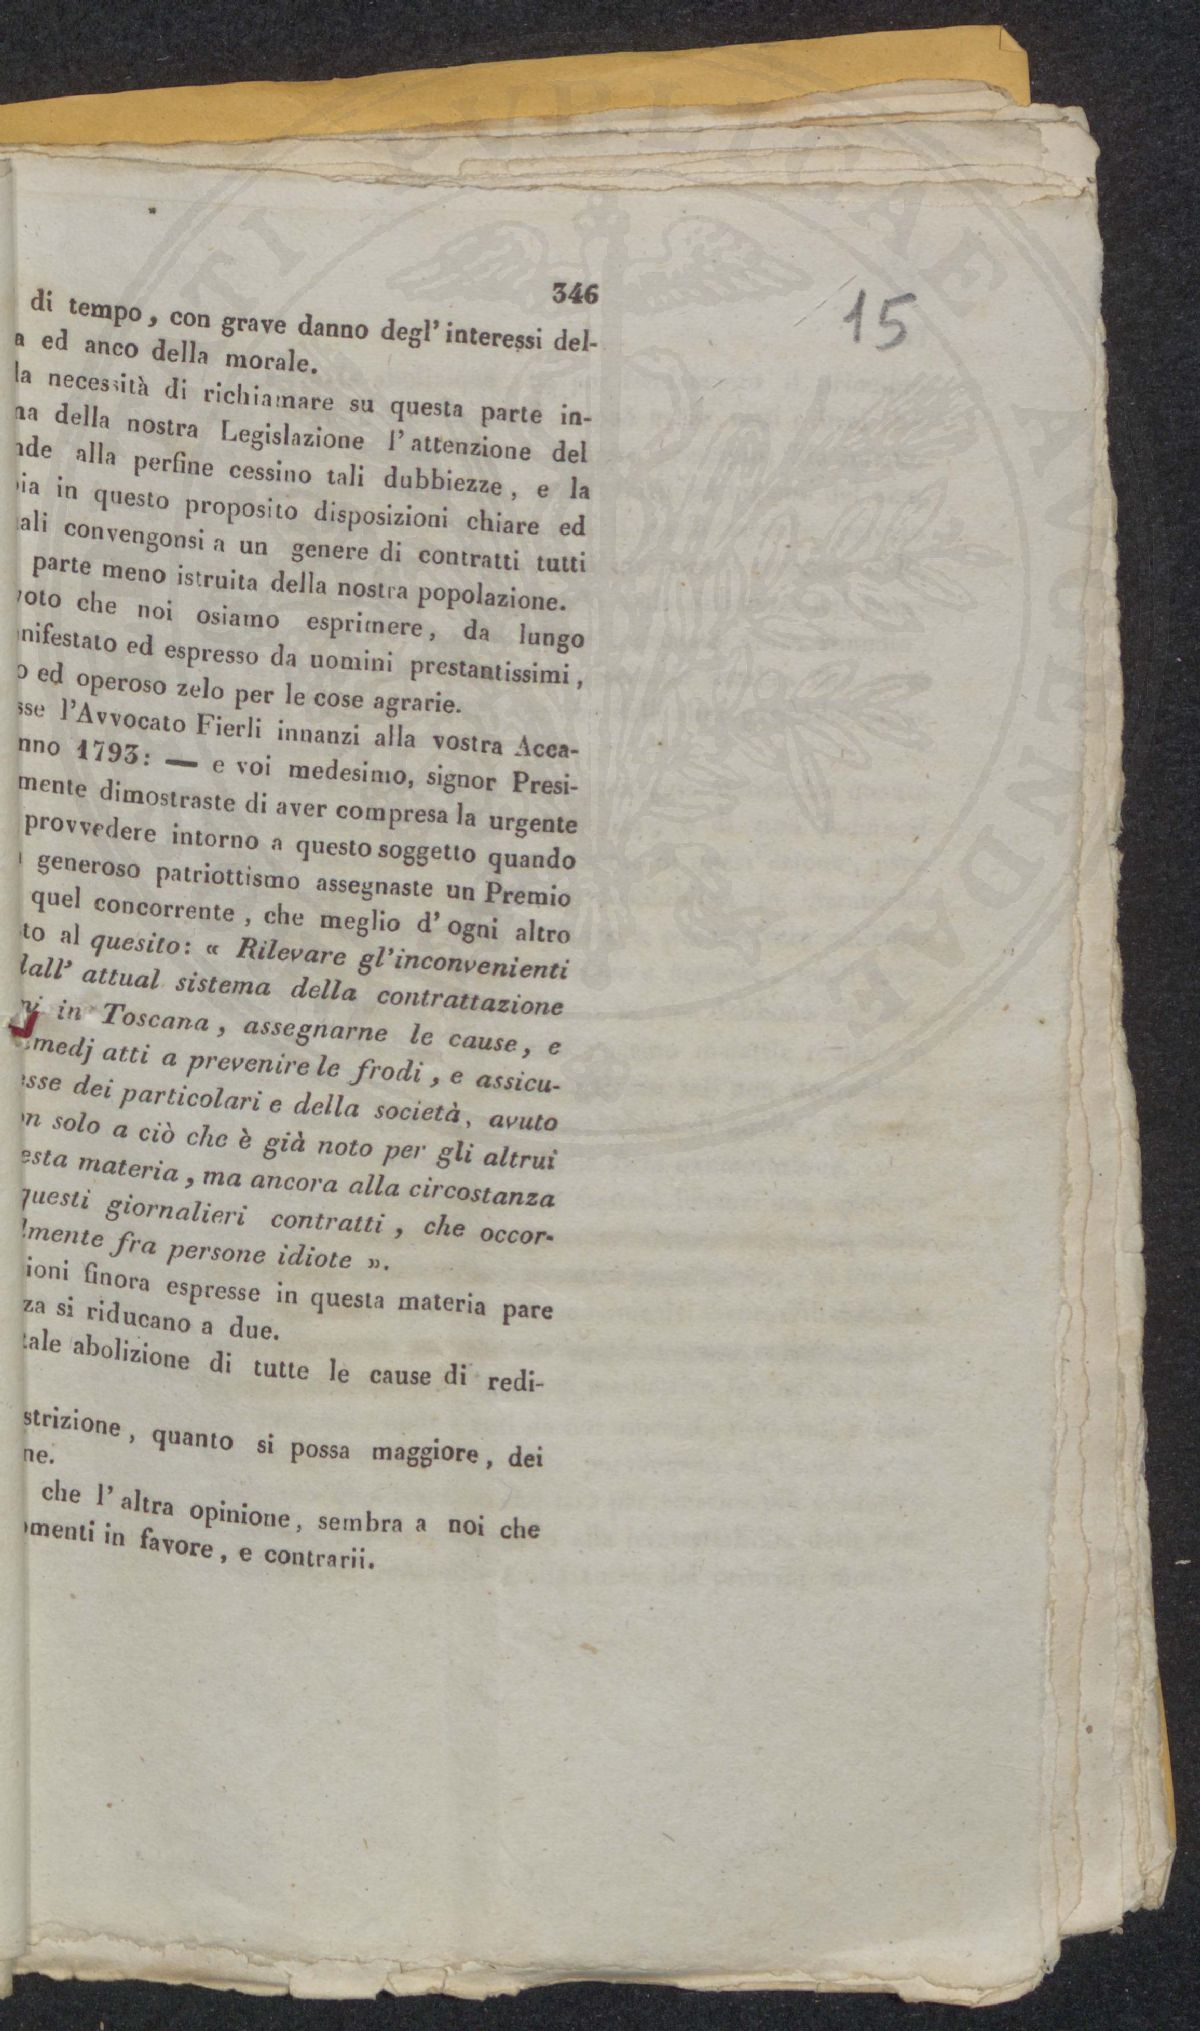 346
15
di tempo, con grave danno degl' interessi del-
a ed anco della morale.
la necessità di richiamare su questa parte in-
na della nostra Legislazione l' attenzione del
nde alla perfine cessino tali dubbiezze, e la
bia in questo proposito disposizioni chiare ed
ali convengonsi a un genere di contratti tutti
parte meno istruita della nostra popolazione.
voto che noi osiamo esprimere, da lungo
nifestato ed espresso da uomini prestantissimi,
o ed operoso zelo per le cose agrarie.
sse l'Avvocato Fierli innanzi alla vostra Acca-
nno 1793: — e voi medesimo, signor Presi-
mente dimostraste di aver compresa la urgente
provvedere intorno a questo soggetto quando
generoso patriottismo assegnaste un Premio
quel concorrente, che meglio d' ogni altro
to al quesito: « Rilevare gl'inconvenienti
dall' attual sistema della contrattazione
ni in Toscana, assegnarne le cause, e
medj atti a prevenire le frodi, e assicu-
esse dei particolari e della società, avuto
on solo a ciò che è già noto per gli altrui
esta materia, ma ancora alla circostanza
questi giornalieri contratti, che occor-
lmente fra persone idiote ».
ioni finora espresse in questa materia pare
za si riducano a due.
tale abolizione di tutte le cause di redi-
strizione, quanto si possa maggiore, dei
ne.
che l' altra opinione, sembra a noi che
omenti in favore, e contrarii.